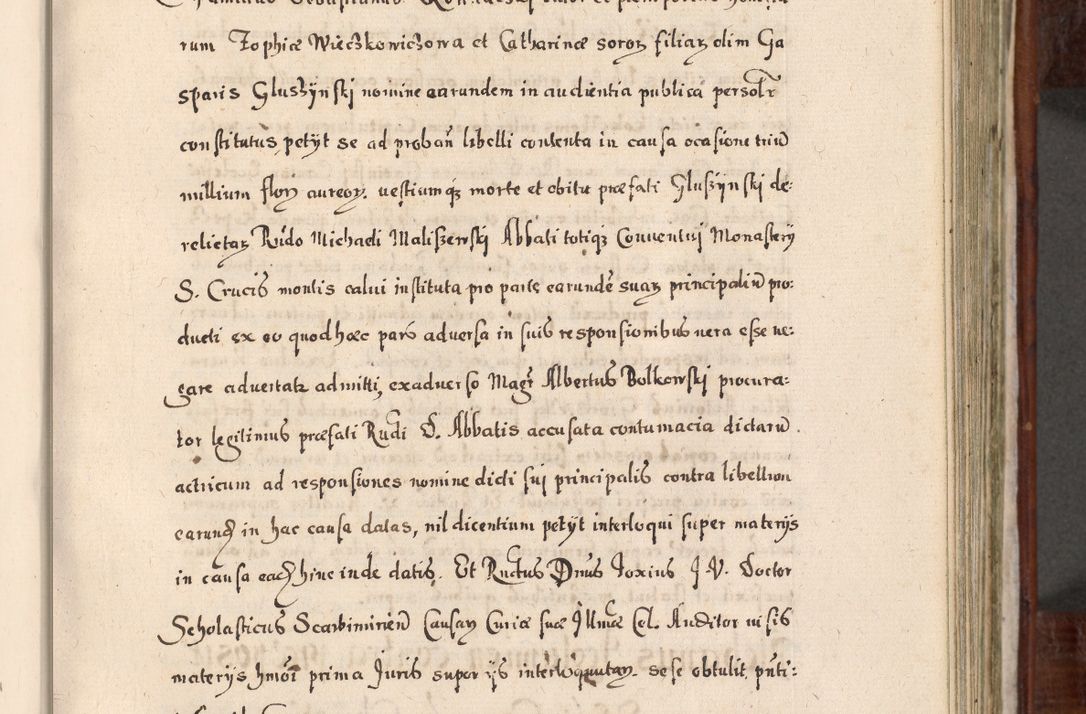 rum Zophiæ Wieczkowiczowa et Catharinæ soror filiar olim Ga
sparis Gluszynskj nomine earundem in audientia publica persolr
constitutus, petyt se ad proban libelli contenta in causa ocasione triu
millium flor aureor. vestiumqz morte et obitu præfati Gluszynskj de:
relictar Rndo Michaeli Maliszewskj Abbati totiqz Conventuj Monastery
S. Crucis montis calui instituta pro parte earunde suar principaliu pro:
ducti ex eo quod hæc pars adversa in suis responsionibus vera esse ne:
gare advertatr admitti, exadverso Magr Albertus Bolkowskj procura:
tor legitimus præfati Rndi D. Abbatis accusata contumacia dictaru
actricum ad responsiones nomine dicti suj principalis contra libellum
earund in hac causa datas, nil dicentium petyt interloqui super materys
in causa eade hinc inde datis. Et Rndus Dnus Joxius J. V. Doctor
Scholasticus Scarbimirien Causar Curiæ suæ Jllmæ Cel. Auditor visis
materys hmoi prima Juris super ys interloquutar. sese obtulit, pnti: